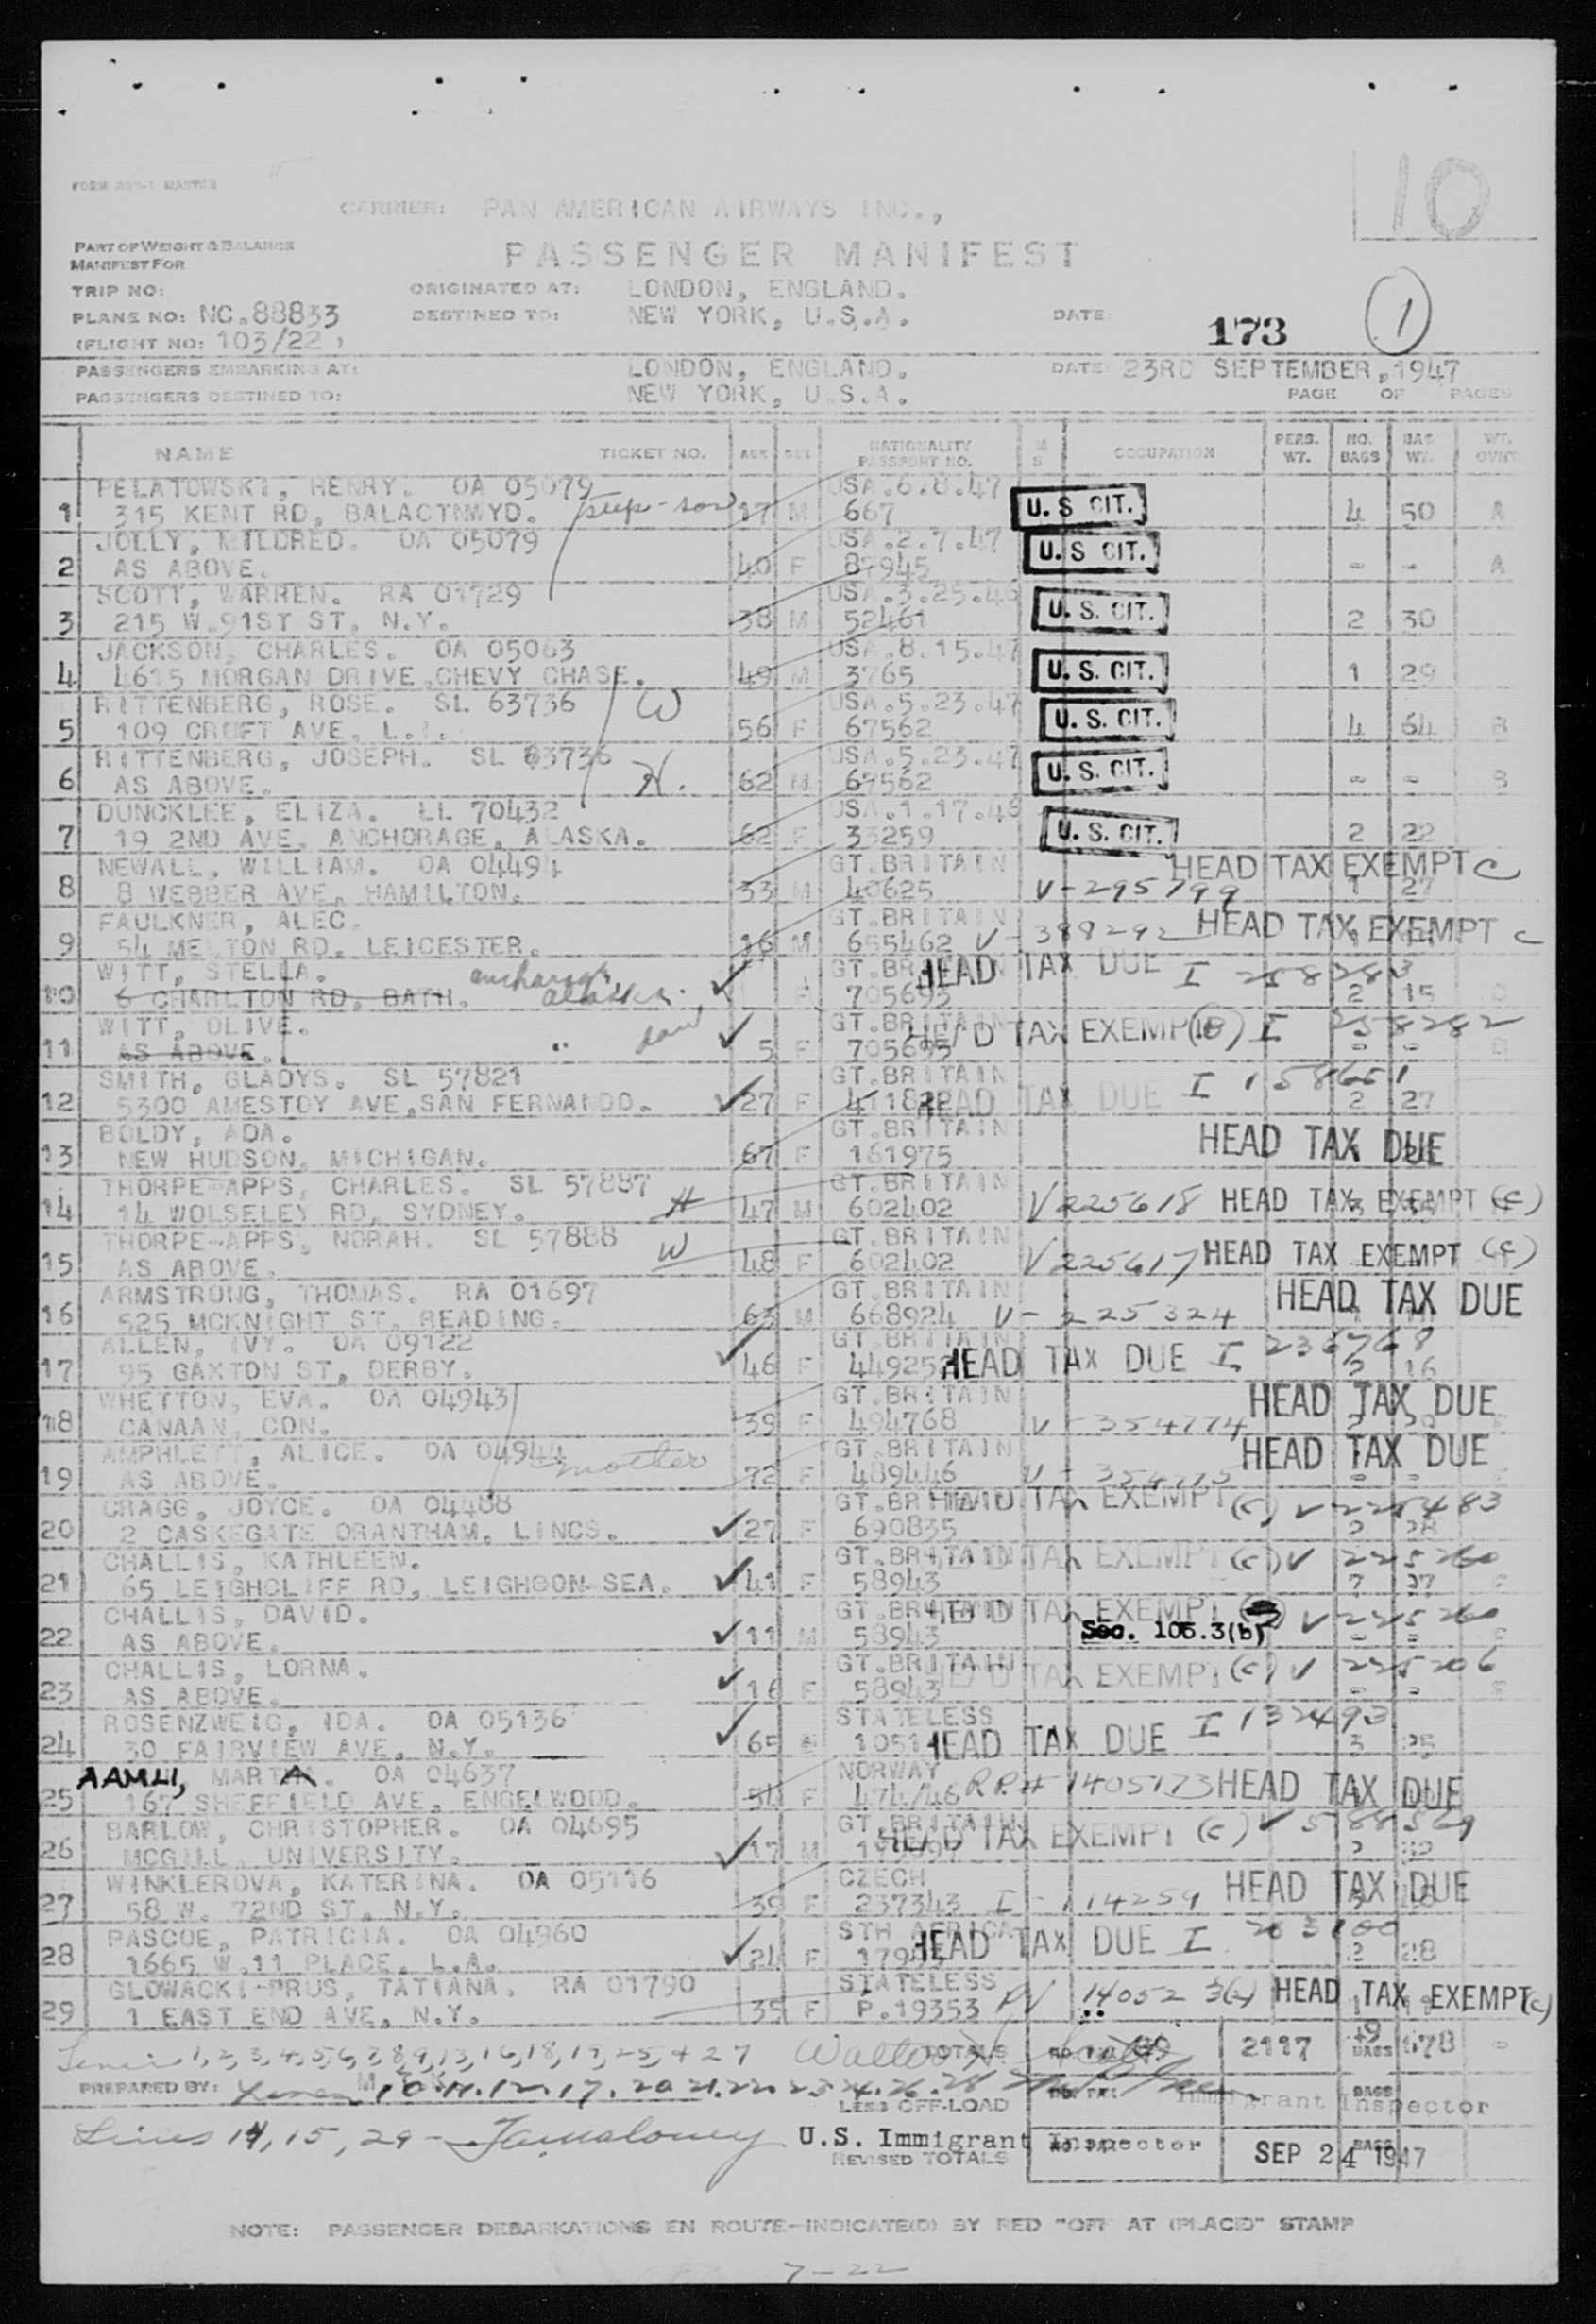 10
CARRIER: PAN AMERICAN AIRWAYS INC.,
PART OF WEIGHT & BALANCE
MANIFEST FOR
PASSENGER MANIFEST
TRIP NO: ORIGINATED AT: LONDON, ENGLAND.
PLANE NO: NC.88833 DESTINED TO: NEW YORK, U.S.A. DATE: 173 1
(FLIGHT NO: 103/22 )
PASSENGERS EMBARKING AT: LONDON, ENGLAND. DATE: 23RD SEPTEMBER, 1947
PASSENGERS DESTINED TO: NEW YORK, U.S.A. PAGE OF PAGES
NAME TICKET NO. AGE SEX NATIONALITY PASSPORT NO. M S OCCUPATION PERS. WT. NO. BAGS BAG WT. WT. OVHT
PELATOWSKI, HENRY. OA 05079 USA.6.8.47
1 315 KENT RD, step-son 17 M 667 U. S CIT. 4 50 A
JOLLY, MILDRED. OA 05079 USA.2.7.47
2 AS ABOVE. 40 F 87945 U. S CIT. - - A
SCOTT, WARREN. RA 01729 USA.3.25.46
3 215 W.91ST ST, N.Y. 38 M 52461 U. S. CIT. 2 30
JACKSON, CHARLES. OA 05063 USA.8.15.47
4 4615 MORGAN DRIVE,CHEVY CHASE. 49 M 3765 U. S. CIT. 1 29
RITTENBERG, ROSE. SL 63736 W USA.5.23.47
5 109 CROFT AVE, 56 F 67562 U. S. CIT. 4 64 B
RITTENBERG, JOSEPH. SL 63736 USA.5.23.47
6 AS ABOVE. H. 62 M 67562 U. S. CIT. - - B
DUNCKLEE, ELIZA. LL 70432 USA.1.17.46
7 19 2ND AVE, ANCHORAGE, ALASKA. 62 F 33259 U. S. CIT. 2 22
NEWALL, WILLIAM. OA 04494 GT.BRITAIN HEAD TAX EXEMPT C
8 8 WEBBER AVE, HAMILTON. 33 M 40625 V-295799 1 27
FAULKNER, ALEC. GT.BRITAIN
9 54 MELTON RD, LEICESTER. 16 M 655462 V-389292 HEAD TAX EXEMPT C
WITT, STELLA. anchorage GT.BRITAIN HEAD TAX DUE I 258283
10 6 CHARLTON RD, BATH. alaska. F 705695 2 15
WITT, OLIVE. GT.BRITAIN HEAD TAX EXEMPT (B) I 258282
11 AS ABOVE. " 5 F 705695 - -
SMITH, GLADYS. SL 57821 GT.BRITAIN
12 5300 AMESTOY AVE,SAN FERNANDO. 27 F HEAD TAX DUE I 158651 2 27
BOLDY, ADA. GT.BRITAIN
13 NEW HUDSON, MICHIGAN. 67 F 161975 HEAD TAX DUE
THORPE-APPS, CHARLES. SL 57887 GT.BRITAIN
14 14 WOLSELEY RD, SYDNEY. H 47 M 602402 V225618 HEAD TAX EXEMPT (C)
THORPE-APPS, NORAH. SL 57888 GT.BRITAIN
15 AS ABOVE. W 48 F 602402 V225617 HEAD TAX EXEMPT (C)
ARMSTRONG, THOMAS. RA 01697 GT.BRITAIN
16 525 MCKNIGHT ST, READING. 63 M 668924 V-225324 HEAD TAX DUE
ALLEN, IVY. OA 09122 GT.BRITAIN
17 95 GAXTON ST, DERBY. 46 F HEAD TAX DUE I 236768 2 16
WHETTON, EVA. OA 04943 GT.BRITAIN
18 CANAAN, CON. 39 F 494768 V-354774 HEAD TAX DUE
AMPHLETT, ALICE. OA 04944 GT.BRITAIN
19 AS ABOVE. mother 72 F 489446 V-354775 HEAD TAX DUE
CRAGG, JOYCE. OA 04488 GT.BRITAIN HEAD TAX EXEMPT (C) V 225483
20 2 CASKEGATE GRANTHAM, LINCS. 27 F 690835
CHALLIS, KATHLEEN. GT.BRITAIN HEAD TAX EXEMPT (C) V 225260
21 65 LEIGHCLIFF RD, LEIGHOON SEA. 41 F 58943
CHALLIS, DAVID. GT.BRITAIN HEAD TAX EXEMPT V 225260
22 AS ABOVE. 11 M 58943 Sec. 105.3(b)
CHALLIS, LORNA. GT.BRITAIN HEAD TAX EXEMPT (C) V 225206
23 AS ABOVE. 16 F 58943
ROSENZWEIG, IDA. OA 05136 STATELESS
24 30 FAIRVIEW AVE, N.Y. 65 HEAD TAX DUE I 132493
AAMLI, MARTHA. OA 04637 NORWAY
25 167 SHEFFIELD AVE, ENGELWOOD. 54 F 474/46 R.P.# 1405173 HEAD TAX DUE
BARLOW, CHRISTOPHER. OA 04695 GT.BRITAIN HEAD TAX EXEMPT (C) V 588569
26 MCGILL, UNIVERSITY. 17 M
WINKLEROVA, KATERINA. OA 05116 CZECH
27 58 W. 72ND ST, N.Y. 39 F 237343 I-114259 HEAD TAX DUE
PASCOE, PATRICIA. OA 04960 STH AFRICA
28 1665 W.11 PLACE, L.A. 24 F HEAD TAX DUE I 2 28
GLOWACKI-PRUS, TATIANA. RA 01790 STATELESS
29 1 EAST END AVE, N.Y. 35 F P.19353 HEAD TAX EXEMPT (C)
TOTALS 2197 49 BAGS 678
PREPARED BY:
LESS OFF-LOAD Immigrant Inspector
Lines 14, 15, 29 - U.S. Immigrant Inspector
REVISED TOTALS SEP 24 1947
NOTE: PASSENGER DEBARKATIONS EN ROUTE-INDICATE(D) BY RED "OFF AT (PLACE)" STAMP
7-22